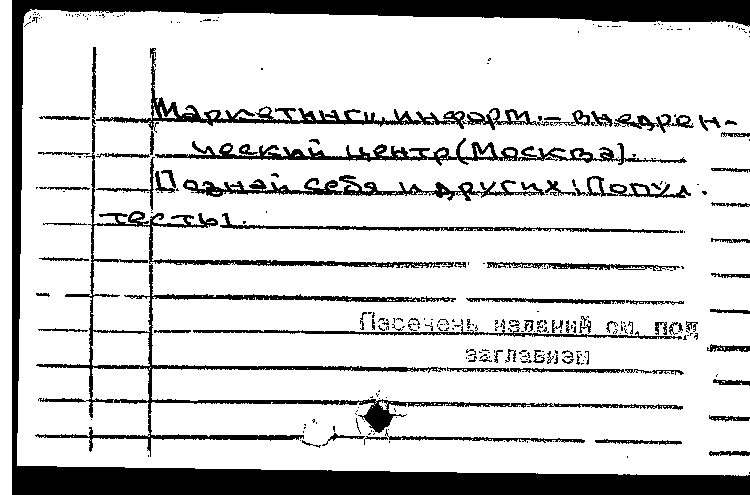 Маркетинги, информ.- внедрен-
ческий центр(Москва).
Познай себя и других:Попул.
тесты.
Перечень изданий см. под
заглавием